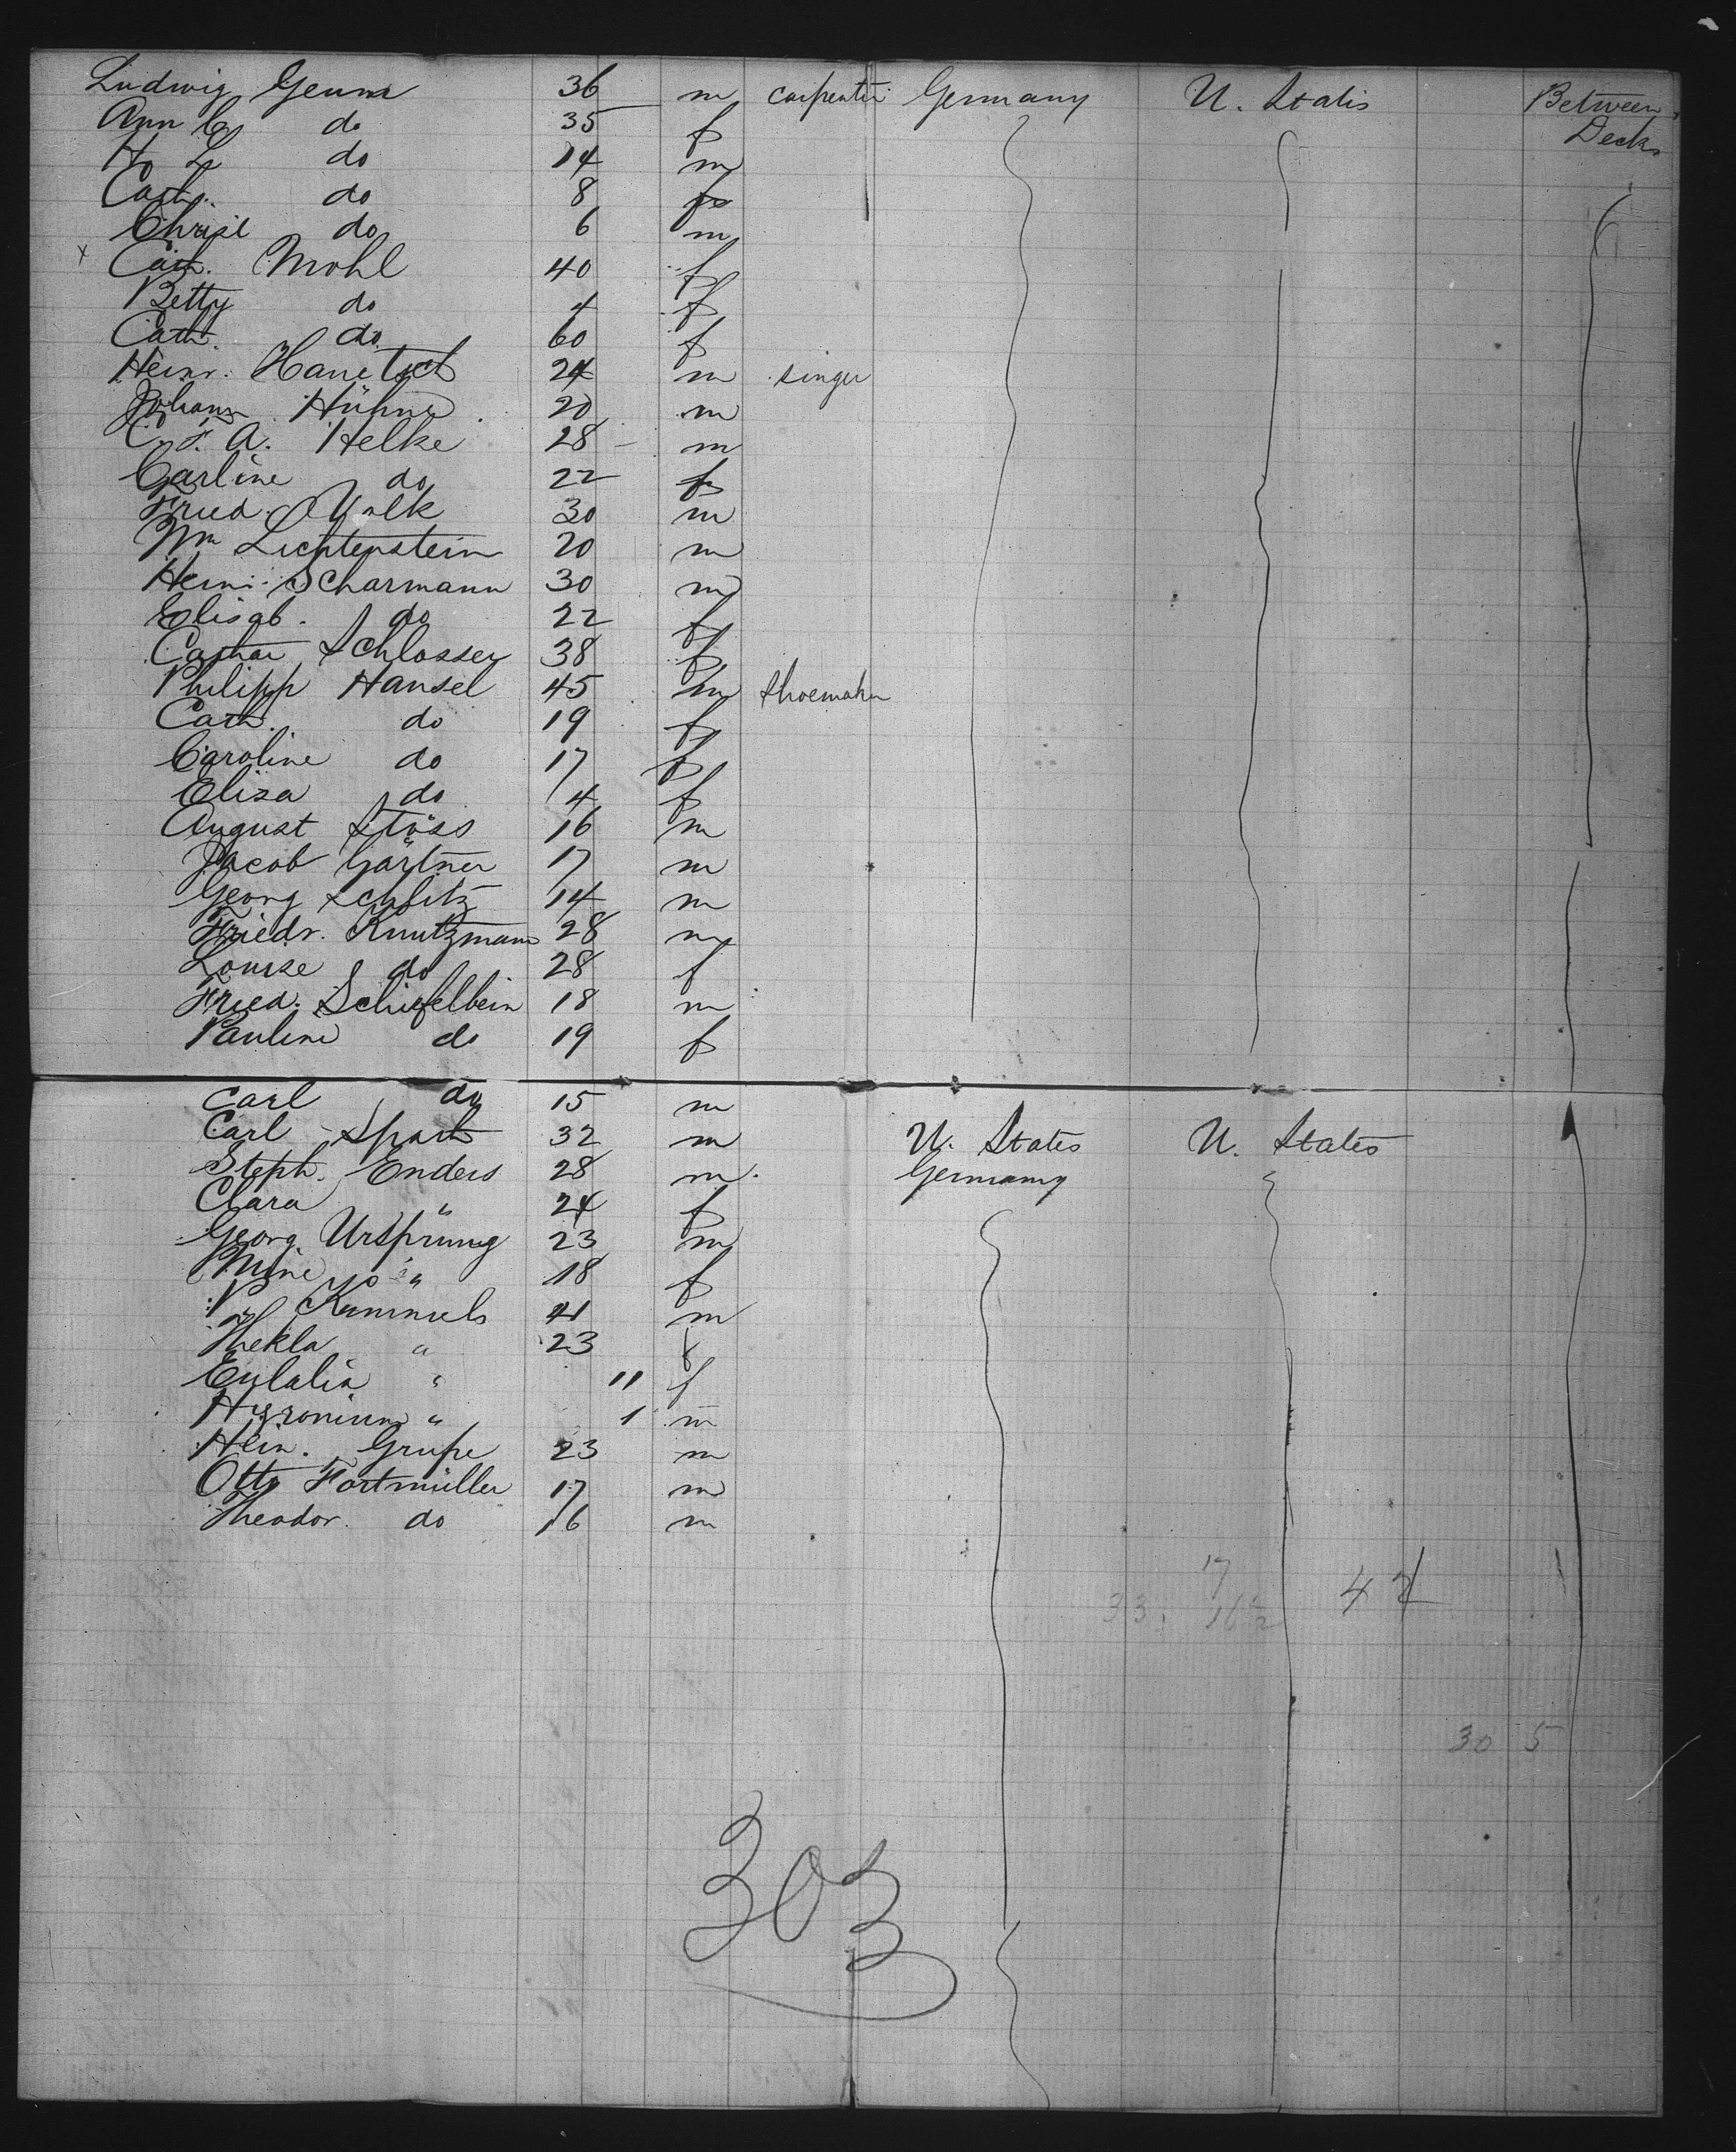 Ludwig Genna 36 m carpenter Germany U. States Between Decks
Ann C. do 35 f
H. L. do 14 m
Cath. do 8 f
Christ do 6 m
x Cath. Mohl 40 f
Betty do 4 f
Cath. do 60 f
Heinr. Hanetsch 24 m singer
Johann Hühne 20 m
C. F. A. Helke 28 m
Carline do 22 f
Fried. Volk 30 m
Wm Lichtenstein 20 m
Heinr. Scharmann 30 m
Elisab. do 22 f
Cathar Schlosser 38 f
Philipp Hansel 45 m shoemaker
Cath. do 19 f
Caroline do 17 f
Eliza do 4 f
August Stöss 16 m
Jacob Gärtner 17 m
Georg Schlitz 14 m
Friedr. Knutzmann 28 m
Louise do 28 f
Fried. Schiefelbein 18 m
Pauline do 19 f
Carl do 15 m
Carl Spath 32 m U. States U. States
Steph. Enders 28 m Germany
Clara " 24 f
Georg Ursprung 23 m
Mine " 18 f
Kummels 41 m
Thekla " 23 f
Eulalia " 11 f
Hyronium " 1 m
Hein. Grupe 23 m
Otto Fortmüller 17 m
Theodor. do 16 m
17
33. 16 42
30 5
303